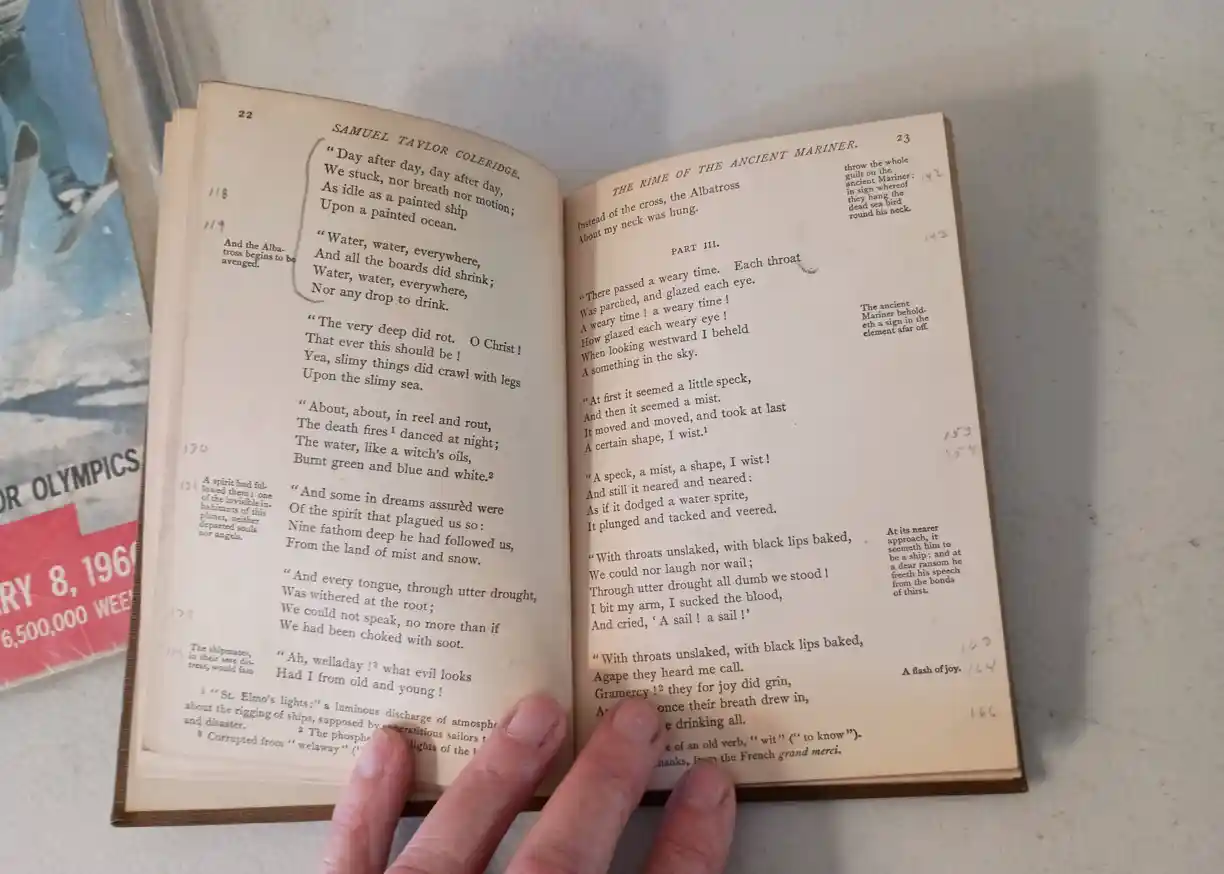 22
SAMUEL TAYLOR COLERIDGE.
"Day after day, day after day,
We stuck, nor breath nor motion;
As idle as a painted ship
Upon a painted ocean.
118
119
And the Alba-
tross begins to be
avenged.
"Water, water, everywhere,
And all the boards did shrink;
Water, water, everywhere,
Nor any drop to drink.
"The very deep did rot. O Christ!
That ever this should be!
Yea, slimy things did crawl with legs
Upon the slimy sea.
"About, about, in reel and rout,
The death fires¹ danced at night;
The water, like a witch's oils,
Burnt green and blue and white.²
130
131
A spirit had fol-
lowed them; one
of the invisible in-
habitants of this
planet, neither
departed souls
nor angels.
"And some in dreams assurèd were
Of the spirit that plagued us so:
Nine fathom deep he had followed us,
From the land of mist and snow.
"And every tongue, through utter drought,
Was withered at the root;
We could not speak, no more than if
We had been choked with soot.
The shipmates,
in their sore dis-
tress, would fain
"Ah, welladay!³ what evil looks
Had I from old and young!
¹ "St. Elmo's lights:" a luminous discharge of atmosphe
about the rigging of ships, supposed by superstitious sailors t
and disaster. ² The phosph lights of the
³ Corrupted from "welaway" (
23
THE RIME OF THE ANCIENT MARINER.
Instead of the cross, the Albatross
About my neck was hung.
throw the whole
guilt on the
ancient Mariner:
in sign whereof
they hang the
dead sea bird
round his neck.
142
143
PART III.
"There passed a weary time. Each throat
Was parched, and glazed each eye.
A weary time! a weary time!
How glazed each weary eye!
When looking westward I beheld
A something in the sky.
The ancient
Mariner behold-
eth a sign in the
element afar off.
"At first it seemed a little speck,
And then it seemed a mist.
It moved and moved, and took at last
A certain shape, I wist.¹
153
154
"A speck, a mist, a shape, I wist!
And still it neared and neared:
As if it dodged a water sprite,
It plunged and tacked and veered.
"With throats unslaked, with black lips baked,
We could nor laugh nor wail;
Through utter drought all dumb we stood!
I bit my arm, I sucked the blood,
And cried, 'A sail! a sail!'
At its nearer
approach, it
seemeth him to
be a ship; and at
a dear ransom he
freeth his speech
from the bonds
of thirst.
"With throats unslaked, with black lips baked,
Agape they heard me call.
Gramercy!² they for joy did grin,
once their breath drew in,
drinking all.
163
A flash of joy. 164
166
of an old verb, "wit" ("to know").
from the French grand merci.
OR OLYMPICS
RY 8, 1960
6,500,000 WEE